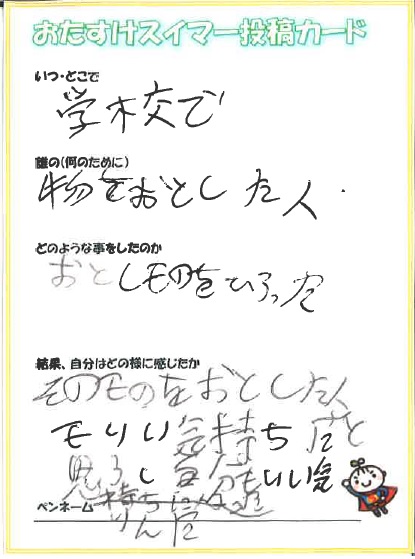 おたすけスイマー投稿カード
いつ・どこで
学校で
誰の(何のために)
物をおとした人.
どのような事をしたのか
おとしものをひろった
結果、自分はどの様に感じたか
そのものをおとした人
もいい気持ちだと
思うし自分もいい気
持ちに
ペンネーム
りんご